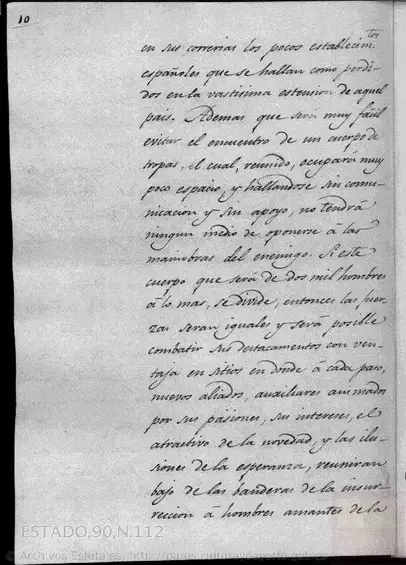 10
en sus correrias los pocos establecim.tos
españoles que se hallan como perdi-
dos en la vastisima estension de aquel
pais. Ademas que será muy fácil
evitar el encuentro de un cuerpo de
tropas, el cual, reunido, ocupará muy
poco espacio, y hallandose sin comu-
nicacion y sin apoyo, no tendrá
ningun medio de oponerse á las
maniobras del enemigo. Si este
cuerpo que será de dos mil hombres
á lo mas, se divide, entonces las fuer-
zas seran iguales y será posible
combatir sus destacamentos con ven-
taja en sitios en donde á cada paso,
nuevos aliados, auxiliares animados
por sus pasiones, sus intereses, el
atractivo de la novedad, y las ilu-
siones de la esperanza, reuniran
bajo de las banderas de la insur-
reccion á hombres amantes de la
ESTADO,90,N.112
© Archivos Estatales, http://pares.culturaydeporte.gob.es